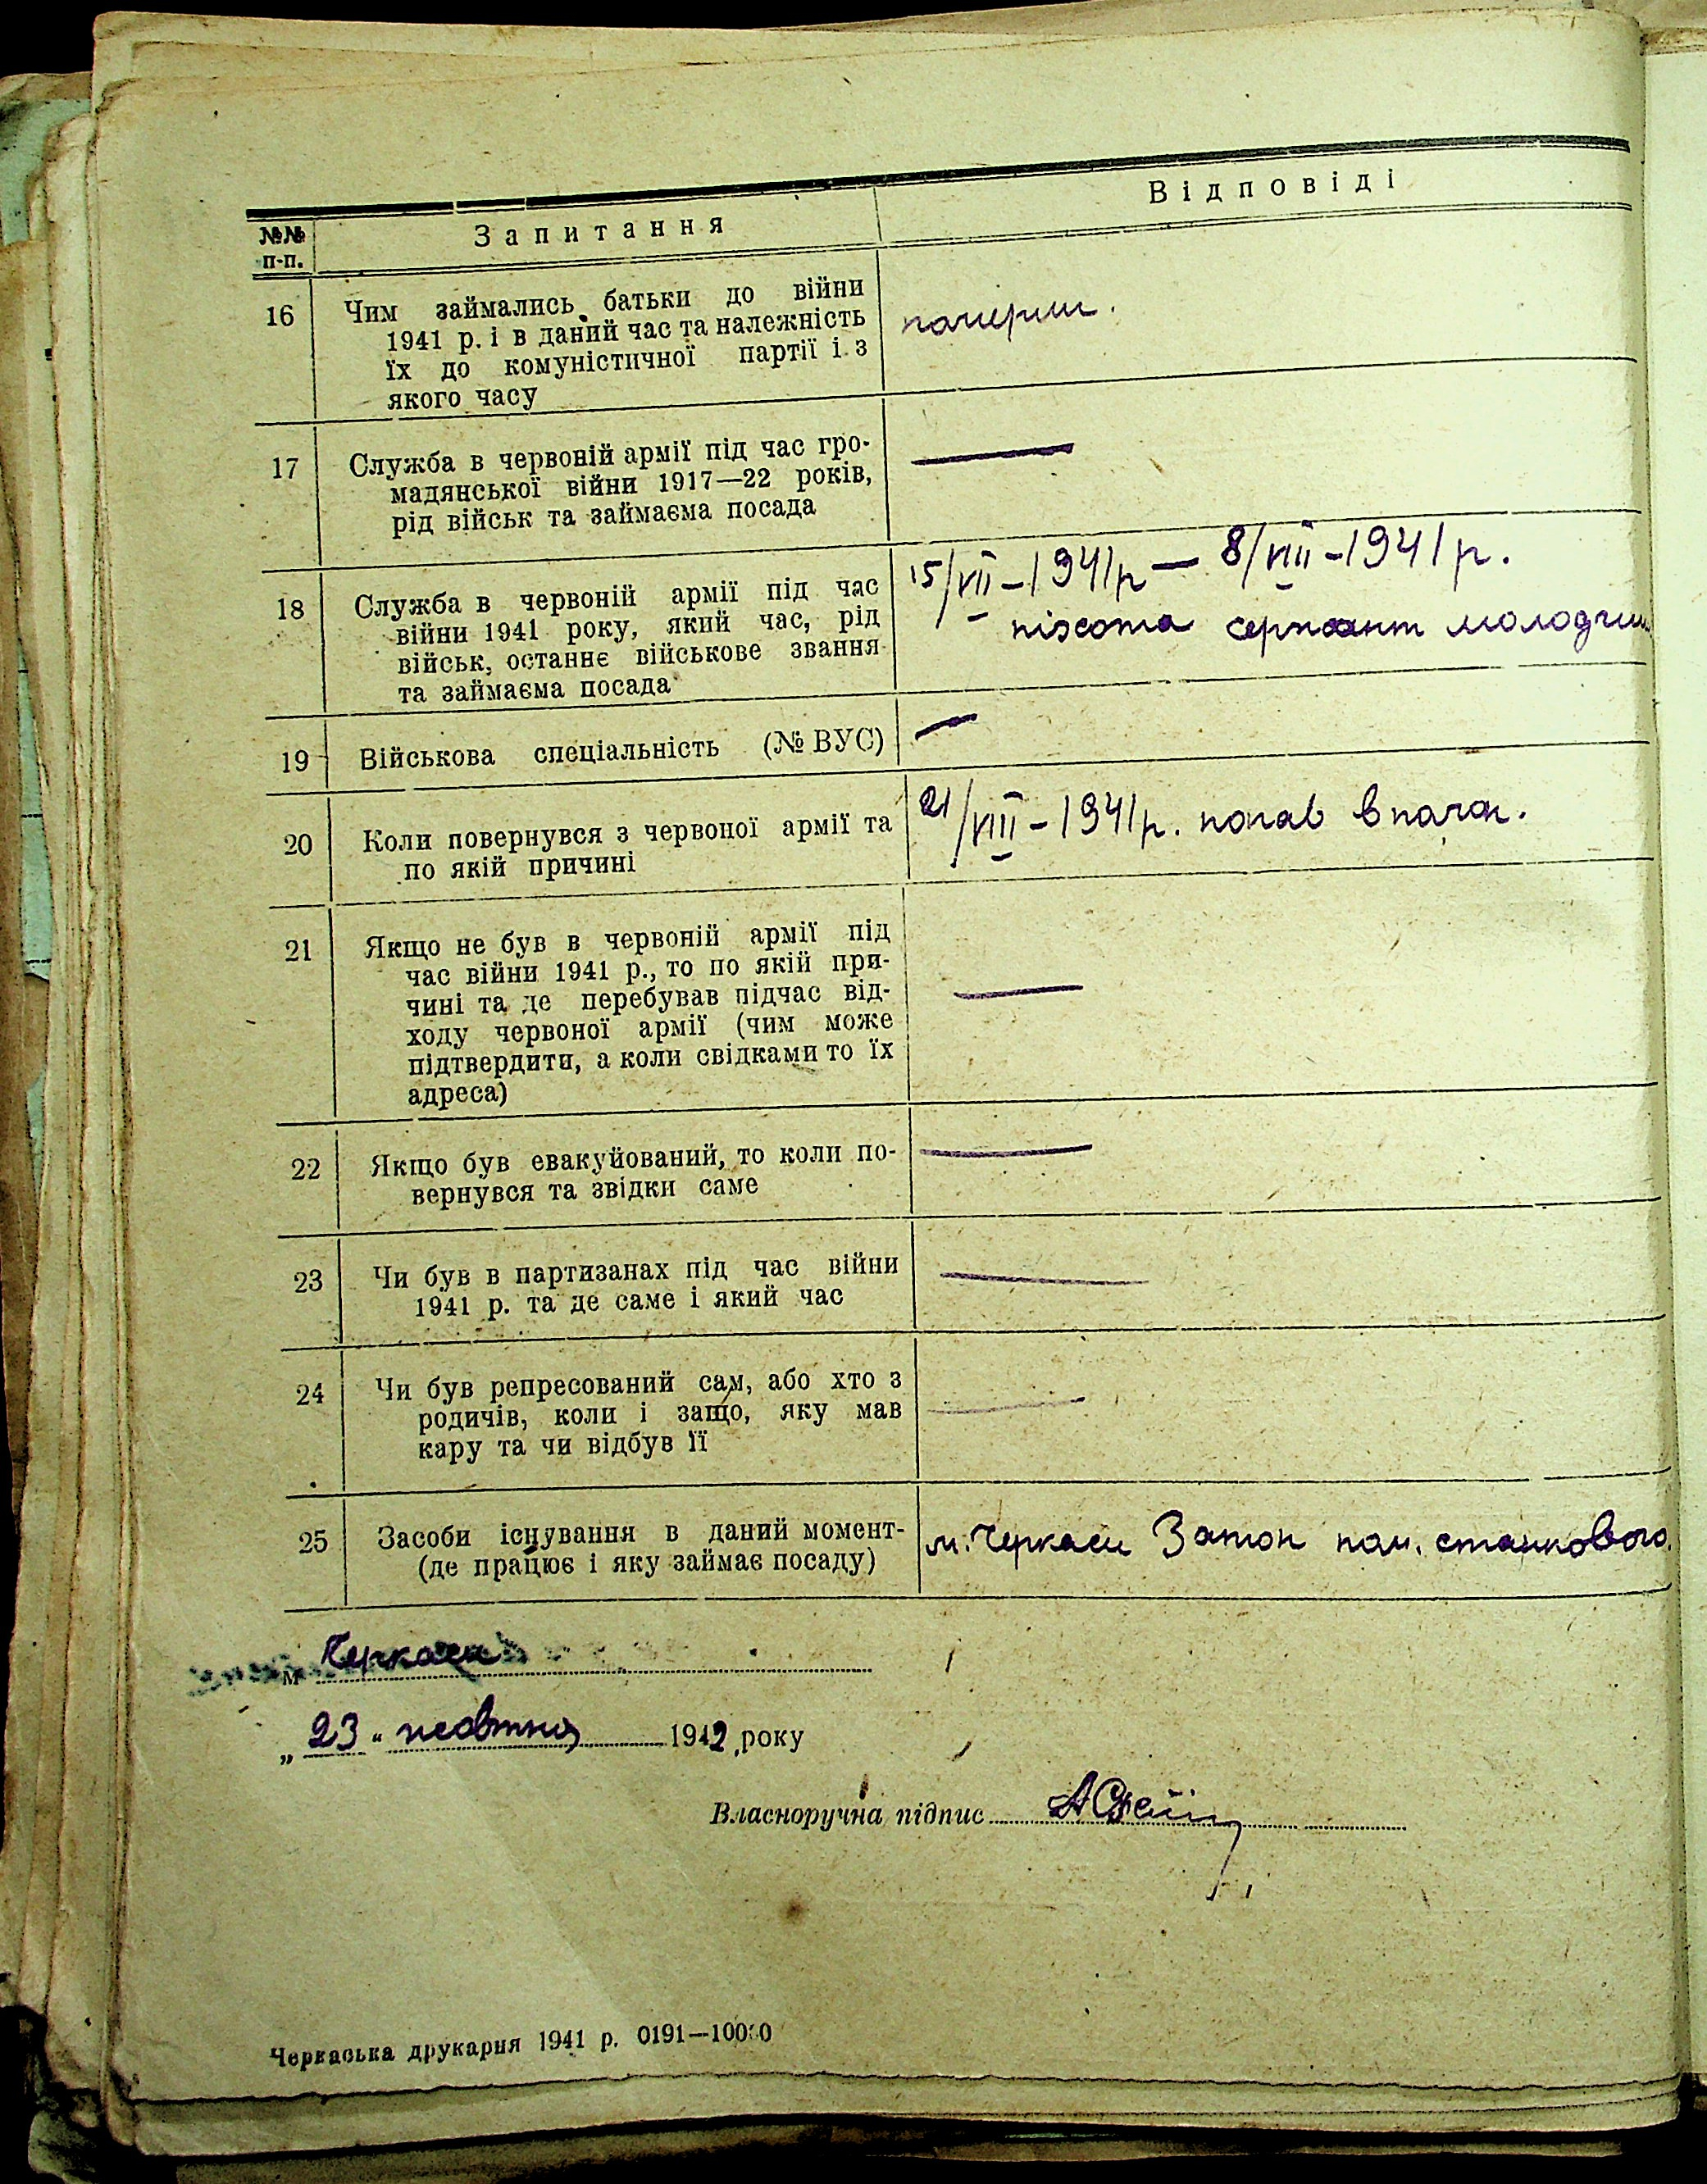 №№ п-п.
Запитання
Відповіді
16
Чим займались батьки до війни
1941 р. і в даний час та належність
їх до комуністичної партії і з
якого часу
померли.
17
Служба в червоній армії під час гро-
мадянської війни 1917—22 років,
рід військ та займаєма посада
—
18
Служба в червоній армії під час
війни 1941 року, який час, рід
військ, останнє військове звання
та займаєма посада
15/VII-1941р — 8/VIII-1941р.
піхота сержант молодший
19
Військова спеціальність (№ ВУС)
—
20
Коли повернувся з червоної армії та
по якій причині
21/VIII-1941р. попав в полон.
21
Якщо не був в червоній армії під
час війни 1941 р., то по якій при-
чині та де перебував підчас від-
ходу червоної армії (чим може
підтвердити, а коли свідками то їх
адреса)
—
22
Якщо був евакуйований, то коли по-
вернувся та звідки саме
—
23
Чи був в партизанах під час війни
1941 р. та де саме і який час
—
24
Чи був репресований сам, або хто з
родичів, коли і защо, яку мав
кару та чи відбув її
—
25
Засоби існування в даний момент-
(де працює і яку займає посаду)
м. Черкаси Затон пом. станкового.
м Черкаси
„23" жовтня 1942 року
Власноручна підпис
Черкаська друкарня 1941 р. 0191—10000